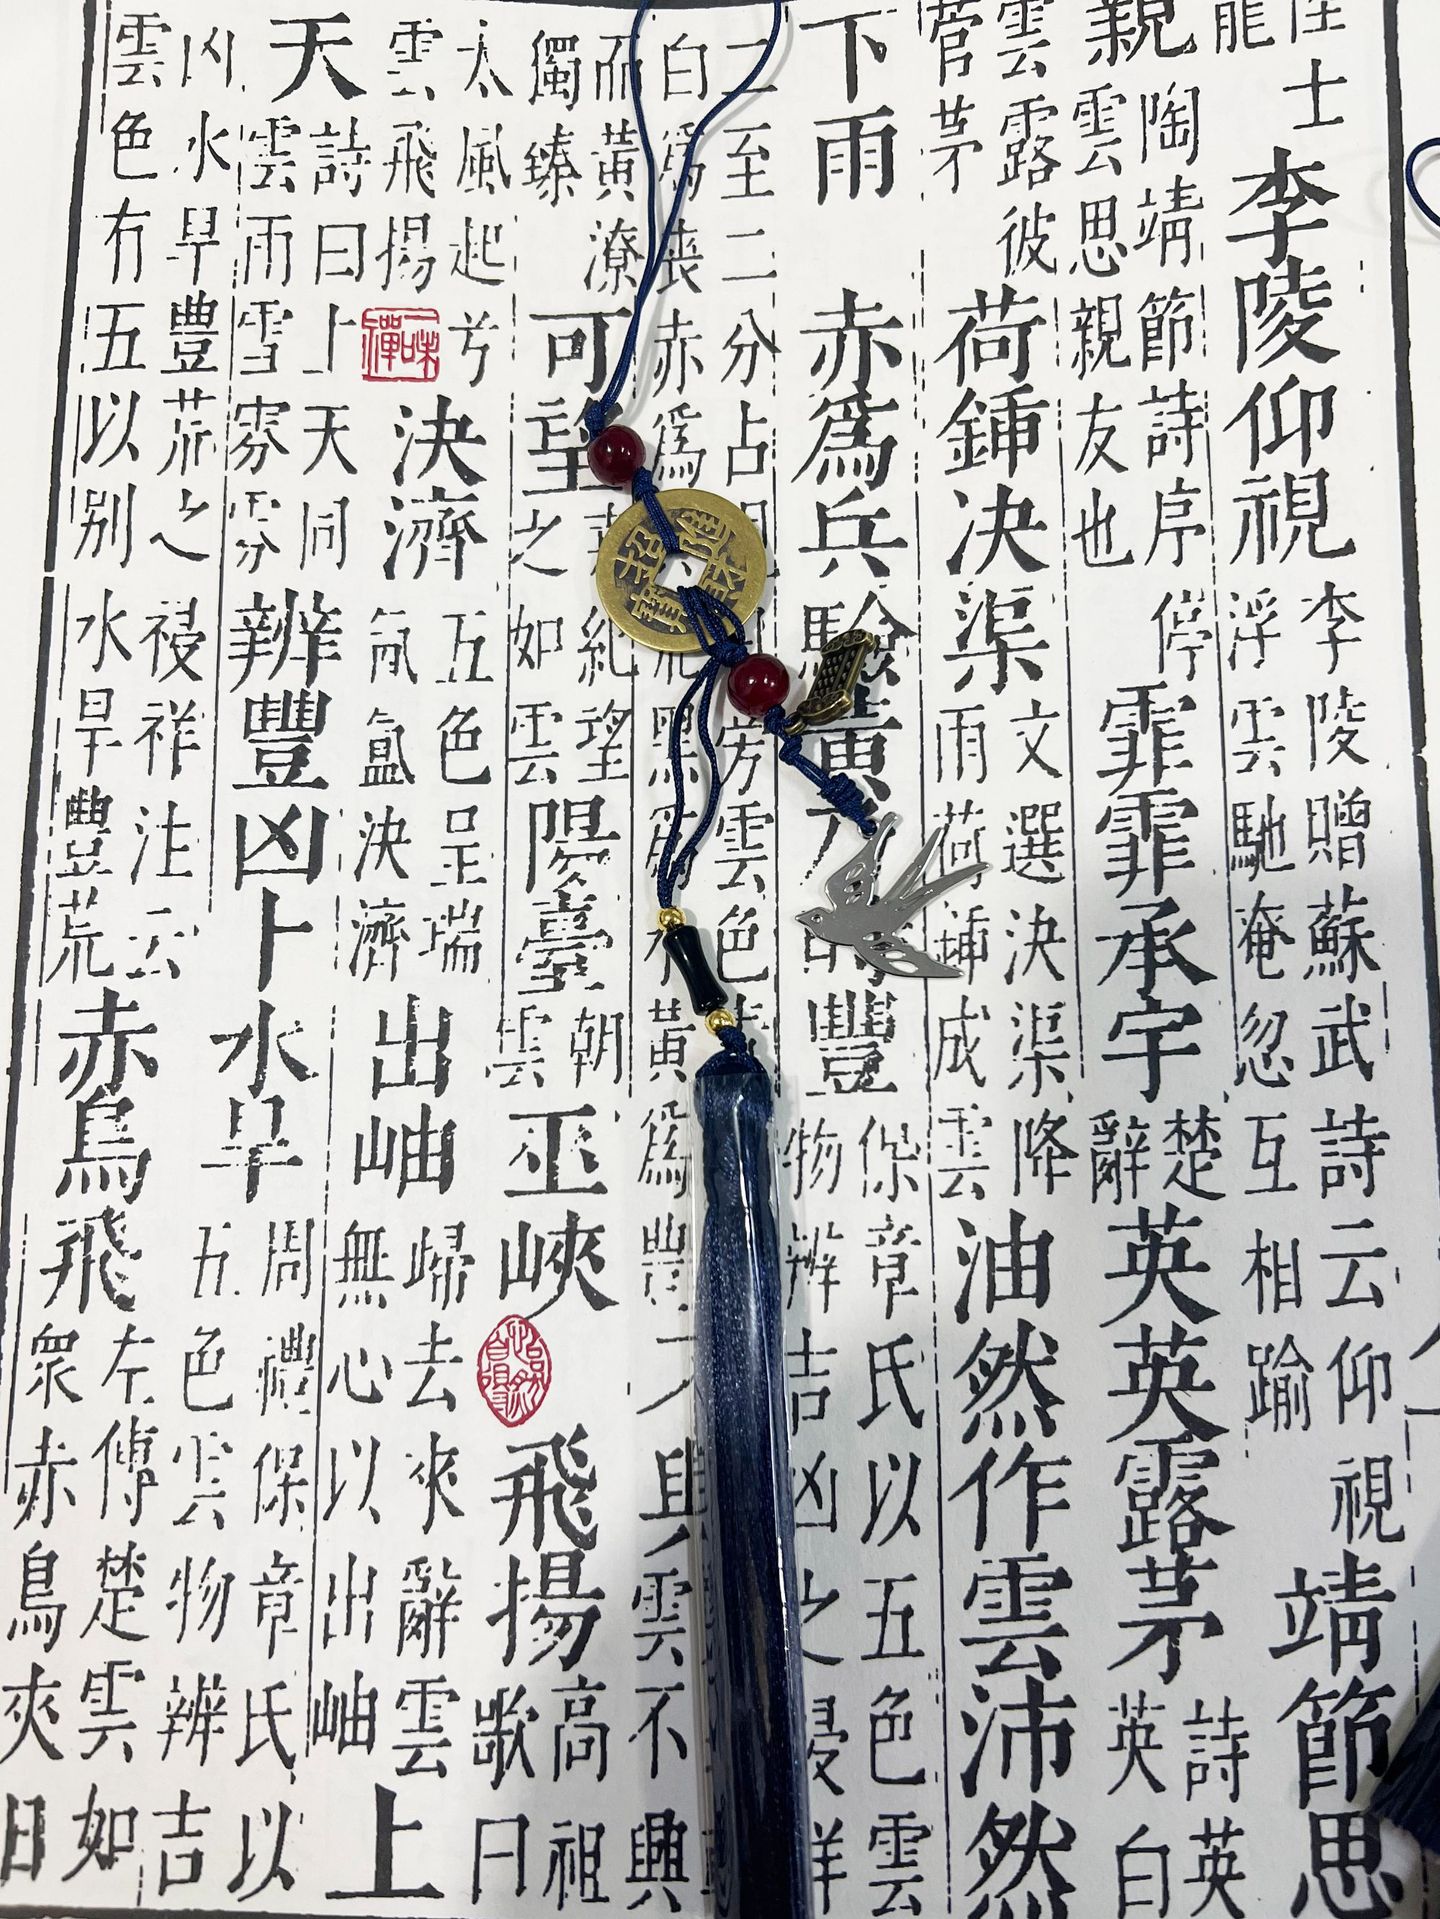 士
李陵仰視
李陵贈蘇武詩云仰視
浮雲馳奄忽互相踰
靖節思
親
陶靖節詩序停
雲思親友也
霏霏承宇
楚
辭
英英露茅
詩英
英白
雲露彼
菅茅
荷鍤決渠
文選決渠降
雨荷鍤成雲
油然作雲沛然
下雨
赤爲兵驗黃
豐
保章氏以五色雲
物辨吉凶之祲祥
二至二分占
旁雲色
白爲喪赤爲
黑爲水黃爲豐
與雲不興
而黃潦
獨臻
可望
紀望
之如雲
陽臺
朝
雲
巫峽
飛揚
高祖
歌曰
太風起兮
雲飛揚
一味禪
決濟
五色呈瑞
氤氳決濟
出岫
歸去來辭雲
無心以出岫
上
天
詩曰上天同
雲雨雪雰雰
辨豐凶卜水旱
周禮保章氏以
五色雲物辨吉
凶水旱豐荒之祲祥注云
雲色有五以別水旱豐荒
赤鳥飛
左傳楚雲如
衆赤鳥夾日
招財進寶